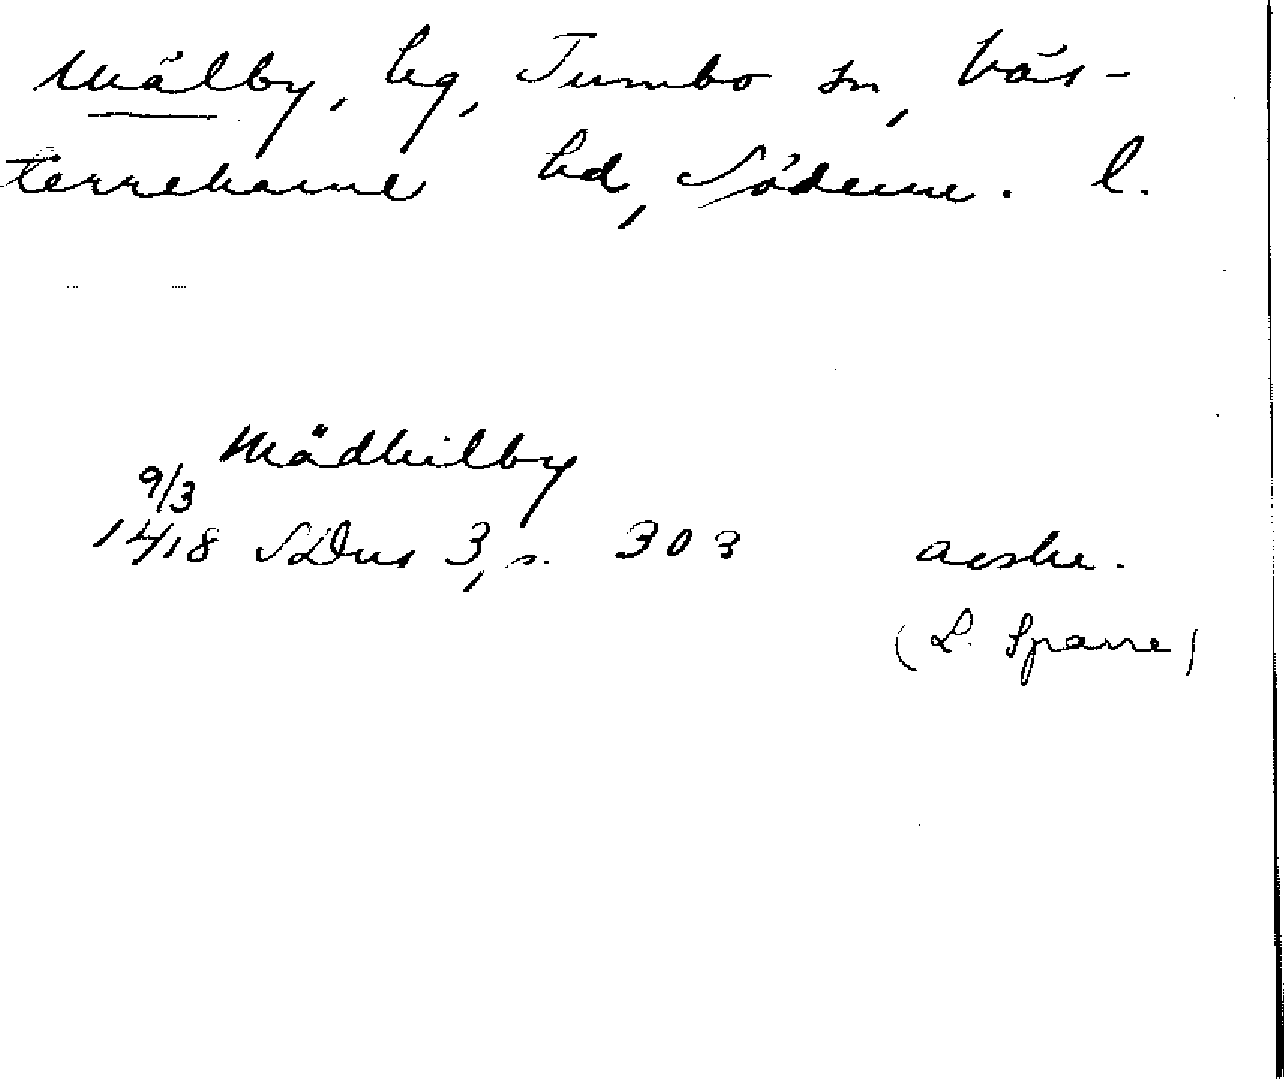 Mälby, hg, Tumbo sn, Väs-
terrekarne hd, Söderm. l.
Mädhilby
9/3
1418 SDns 3, s. 303 avskr.
(L. Sparre)